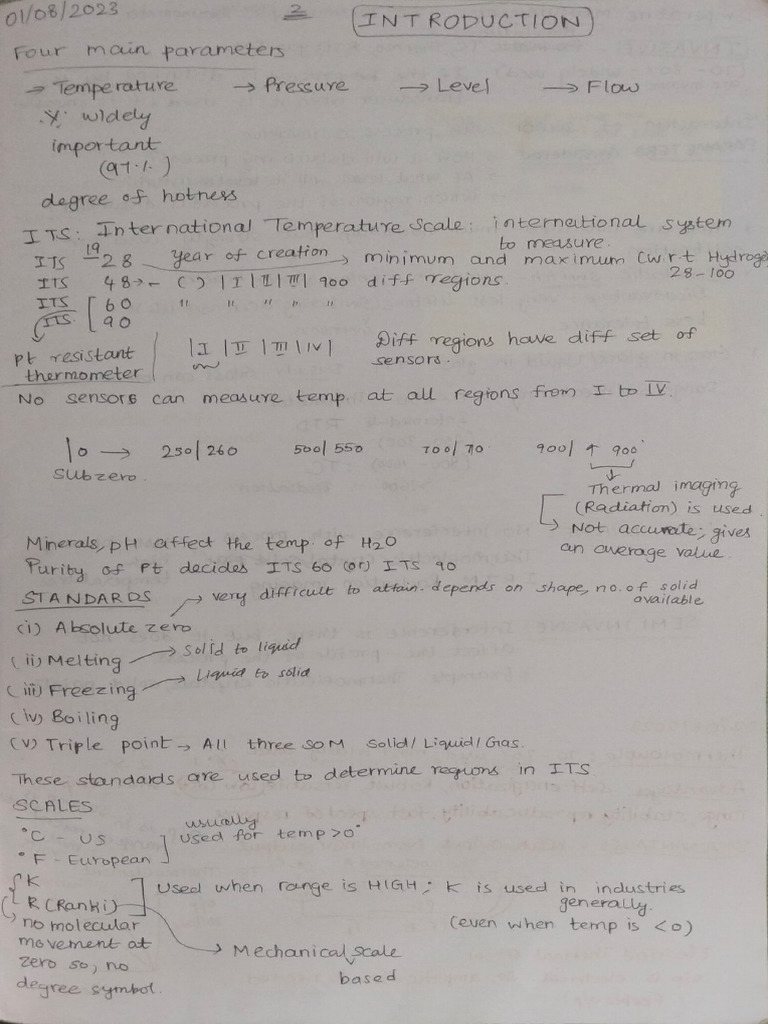 01/08/2023 2 INTRODUCTION
Four main parameters
→ Temperature → Pressure → Level → Flow
widely
important
(97%)
degree of hotness
ITS: International Temperature Scale: international system
to measure.
ITS 1928 year of creation → minimum and maximum (w.r.t Hydroge
28-100
ITS 48 → ( ) | I | II | III | 900 diff regions.
ITS 60 " " " " "
ITS 90
Pt resistant
thermometer
| I | II | III | IV | Diff regions have diff set of
sensors.
No sensors can measure temp. at all regions from I to IV.
|0 → 250/260 500/550 700/710 900/ ↑ 900°
subzero.
Thermal imaging
(Radiation) is used.
Not accurate; gives
an average value.
Minerals, pH affect the temp. of H2O
Purity of Pt decides ITS 60 (or) ITS 90
STANDARDS → very difficult to attain. depends on shape, no. of solid
available
(i) Absolute zero
(ii) Melting → Solid to liquid
(iii) Freezing → Liquid to solid
(iv) Boiling
(v) Triple point → All three SOM Solid/Liquid/Gas.
These standards are used to determine regions in ITS
SCALES
°C - US
°F - European
usually
used for temp >0°
K
R (Ranki)
Used when range is HIGH; K is used in industries
generally.
(even when temp is <0)
no molecular
movement at
zero so, no
degree symbol.
→ Mechanical scale
based